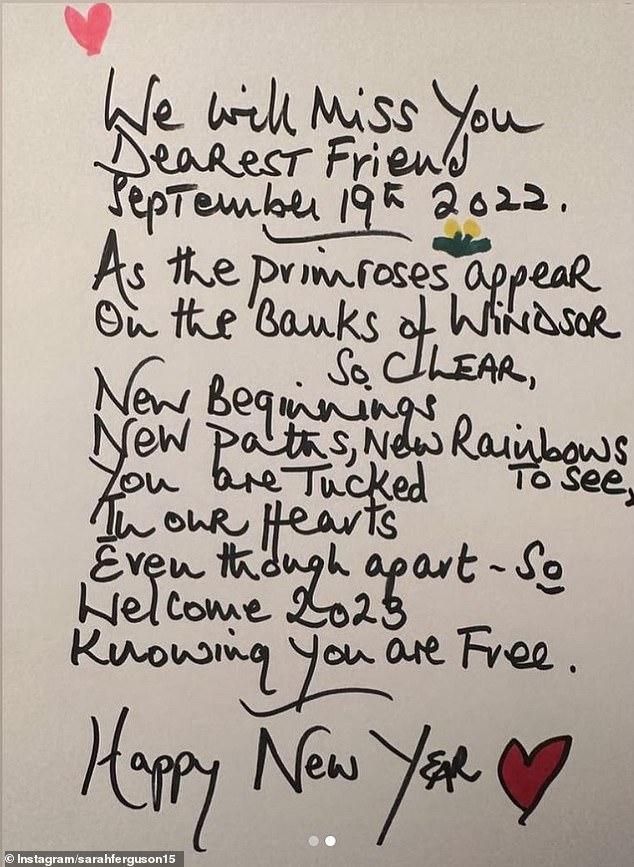 We will Miss You
Dearest Friend
September 19th 2022.
As the primroses appear
On the Banks of WINDSOR
So CLEAR,
New Beginnings
New paths, New Rainbows
To see,
You are Tucked
In our Hearts
Even though apart - So
Welcome 2023
Knowing You are Free.
Happy New Year
© Instagram/sarahferguson15